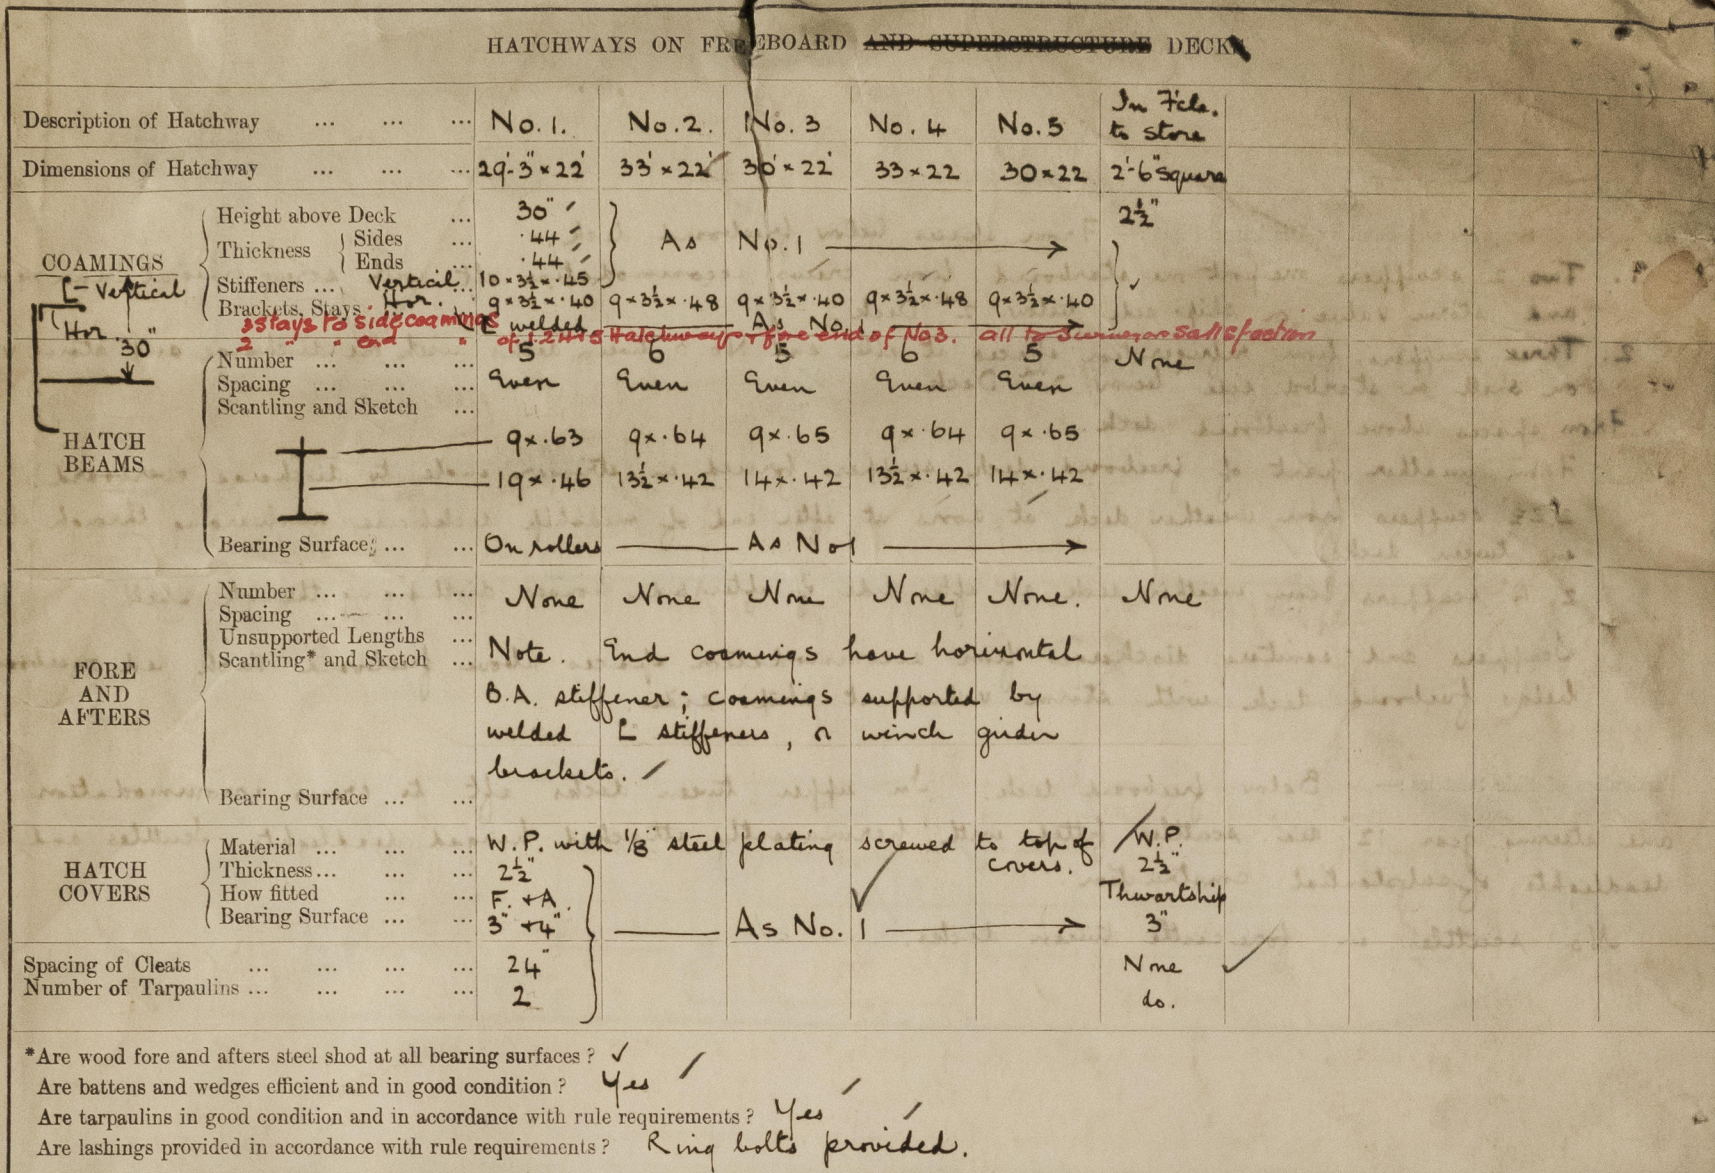 HATCHWAYS ON FREEBOARD AND SUPERSTRUCTURE DECKS
Description of Hatchway ... ... ... No. 1. No. 2. No. 3 No. 4 No. 5 In F'cle. to store
Dimensions of Hatchway ... ... ... 29'-3" × 22' 33' × 22' 30' × 22' 33 × 22 30 × 22 2'-6" square
COAMINGS
Height above Deck ... 30" 2½"
Thickness Sides ... .44 As No. 1
Ends ... .44
Stiffeners ... Vertical ... 10 × 3½ × .45
[ - Vertical
Brackets, Stays Hor. 9 × 3½ × .40 9 × 3½ × .48 9 × 3½ × .40 9 × 3½ × .48 9 × 3½ × .40
Hor. 30"
welded As No. 1
3 stays to side coamings of 1. 2 4 + 5 Hatchways + fore end of No 3. all to Surveyors satisfaction
2 " " end "
HATCH BEAMS
Number ... ... ... 5 6 5 6 5 None
Spacing ... ... ... Even Even Even Even Even
Scantling and Sketch ...
9 × .63 9 × .64 9 × .65 9 × .64 9 × .65
19 × .46 13½ × .42 14 × .42 13½ × .42 14 × .42
Bearing Surface ... ... On rollers As No 1
FORE AND AFTERS
Number ... ... ... None None None None None. None
Spacing ... ... ...
Unsupported Lengths ...
Scantling* and Sketch ... Note. End coamings have horizontal
B.A. stiffener; coamings supported by
welded L stiffeners, or winch girder
brackets.
Bearing Surface ... ...
HATCH COVERS
Material ... ... ... W.P. with 1/8" steel plating screwed to top of covers. W.P.
Thickness ... ... ... 2½" 2½"
How fitted ... ... F. + A. Thwartship
Bearing Surface ... ... 3" + 4" As No. 1 3"
Spacing of Cleats ... ... ... ... 24" None
Number of Tarpaulins ... ... ... ... 2 do.
*Are wood fore and afters steel shod at all bearing surfaces? ✓
Are battens and wedges efficient and in good condition? Yes
Are tarpaulins in good condition and in accordance with rule requirements? Yes
Are lashings provided in accordance with rule requirements? Ring bolts provided.